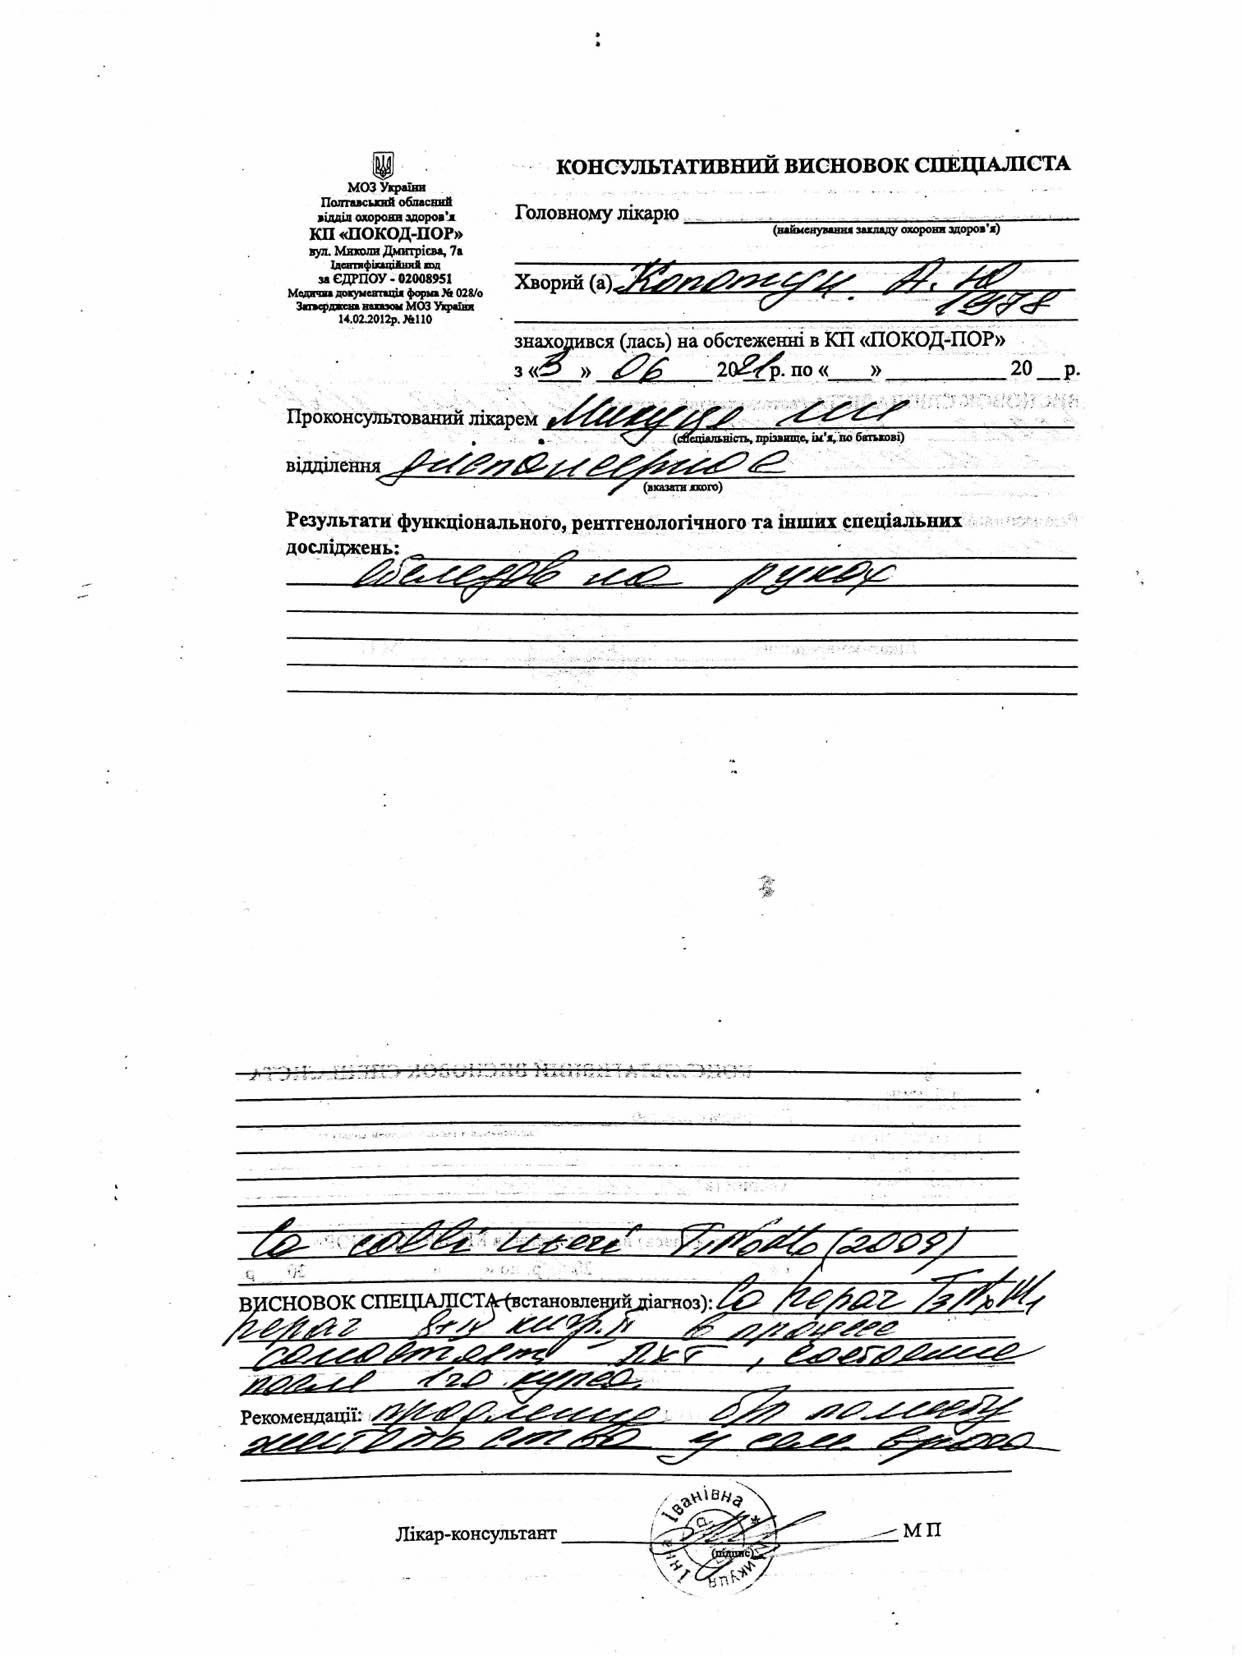 МОЗ України
Полтавський обласний
відділ охорони здоров'я
КП «ПОКОД-ПОР»
вул. Миколи Дмитрієва, 7а
Ідентифікаційний код
за ЄДРПОУ - 02008951
Медична документація форма № 028/о
Затверджена наказом МОЗ України
14.02.2012р. №110
КОНСУЛЬТАТИВНИЙ ВИСНОВОК СПЕЦІАЛІСТА
Головному лікарю
(найменування закладу охорони здоров'я)
Хворий (а) А. Ю
1978
знаходився (лась) на обстеженні в КП «ПОКОД-ПОР»
з «3» 06 2021 р. по «___» ____ 20 __ р.
Проконсультований лікарем Микуця ІІ
(спеціальність, прізвище, ім'я, по батькові)
відділення диспансерное
(вказати якого)
Результати функціонального, рентгенологічного та інших спеціальних
досліджень:
обследов на руках
Ca шеи T1N0M0 (2009)
ВИСНОВОК СПЕЦІАЛІСТА (встановлений діагноз): Ca T3NxM1
в процессе
ПХТ, состояние
после 1го курса.
Рекомендації: продление б/л по месту
жительства у сем. врача
Лікар-консультант
(підпис)
М П
Микуця Інна Іванівна *